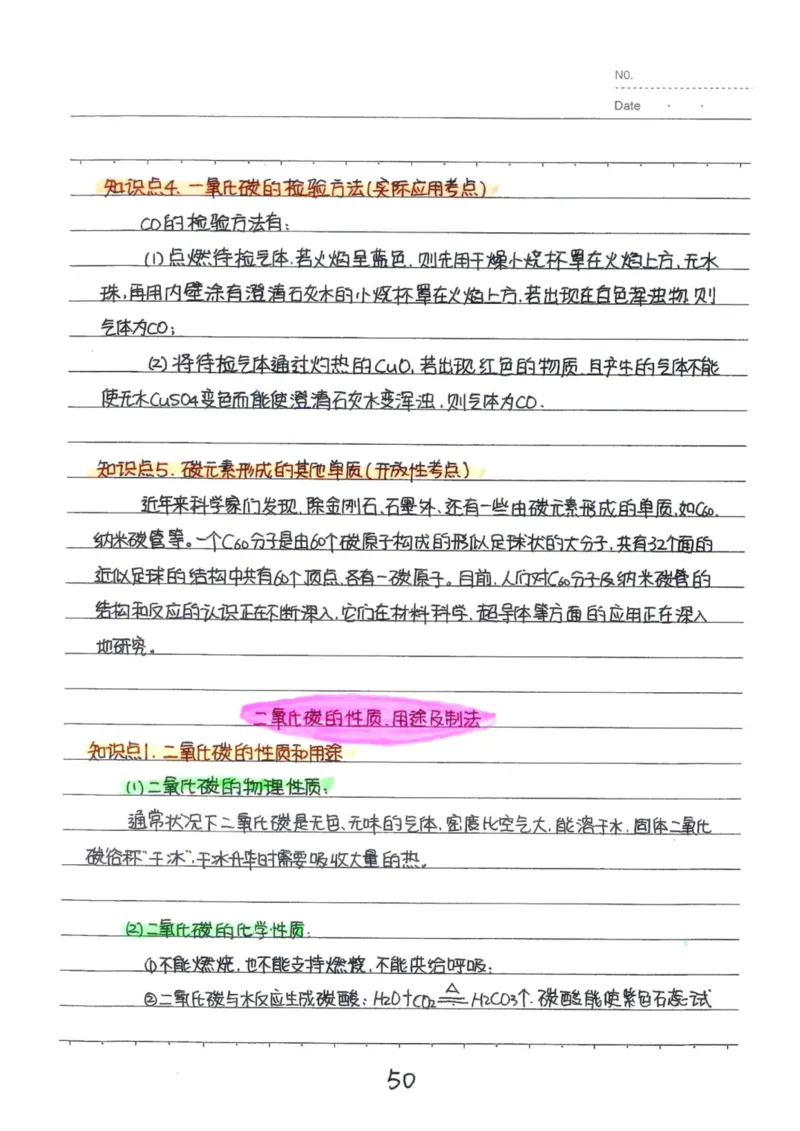 NO.
Date
知识点4. 一氧化碳的检验方法(实际应用考点)
CO的检验方法有:
(1)点燃待检气体.若火焰呈蓝色.则先用干燥小烧杯罩在火焰上方,无水
珠,再用内壁涂有澄清石灰水的小烧杯罩在火焰上方,若出现在白色浑浊物,则
气体为CO;
(2)将待检气体通过灼热的CuO,若出现红色的物质.且产生的气体不能
使无水CuSO4变色而能使澄清石灰水变浑浊,则气体为CO.
知识点5. 碳元素形成的其他单质(开放性考点)
近年来科学家们发现,除金刚石、石墨外、还有一些由碳元素形成的单质,如C60.
纳米碳管等。一个C60分子是由60个碳原子构成的形似足球状的大分子,共有32个面的
近似足球的结构中共有60个顶点,各有一碳原子。目前,人们对C60分子及纳米碳管的
结构和反应的认识正在不断深入,它们在材料科学、超导体等方面的应用正在深入
地研究。
二氧化碳的性质、用途及制法
知识点1. 二氧化碳的性质和用途
(1)二氧化碳的物理性质:
通常状况下二氧化碳是无色、无味的气体,密度比空气大,能溶于水.固体二氧化
碳俗称"干冰",干冰升华时需要吸收大量的热。
(2)二氧化碳的化学性质:
①不能燃烧,也不能支持燃烧,不能供给呼吸;
②二氧化碳与水反应生成碳酸:H2O+CO2 ≜ H2CO3↑. 碳酸能使紫色石蕊试
50